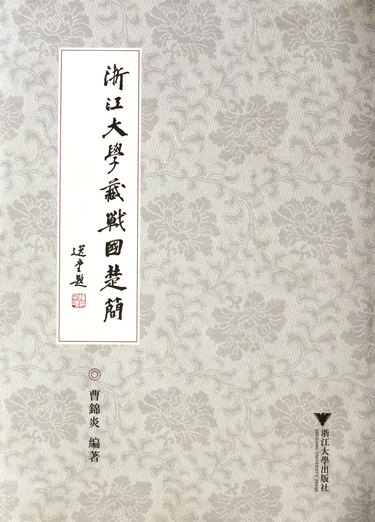 浙江大學藏戰國楚簡
選堂題
曹錦炎 編著
浙江大學出版社
ZHEJIANG UNIVERSITY PRESS